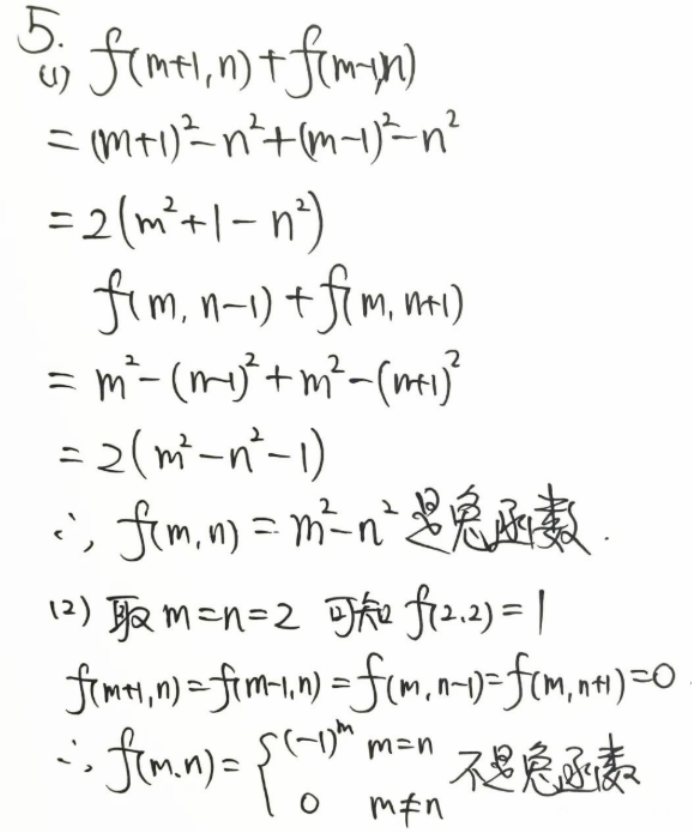 5.
(1) f(m+1,n)+f(m-1,n)
=(m+1)²-n²+(m-1)²-n²
=2(m²+1-n²)
f(m,n-1)+f(m,n+1)
=m²-(n-1)²+m²-(n+1)²
=2(m²-n²-1)
∴, f(m,n)=m²-n²是兔函数.
(2) 取m=n=2 可知f(2.2)=1
f(m+1,n)=f(m-1,n)=f(m,n-1)=f(m,n+1)=0.
∴, f(m.n)={(-1)^m m=n 不是兔函数
0 m≠n